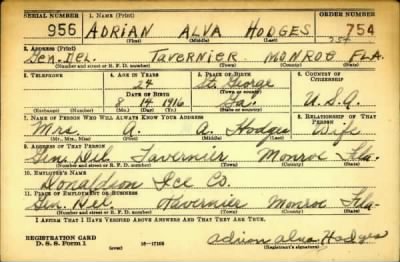 SERIAL NUMBER 1. NAME (Print) ORDER NUMBER
956 ADRIAN ALVA HODGES 754
(First) (Middle) (Last)
2. ADDRESS (Print)
Gen. Del. TAVERNIER MONROE FLA.
(Number and street or R. F. D. number) (Town) (County) (State)
3. TELEPHONE 4. AGE IN YEARS 5. PLACE OF BIRTH 6. COUNTRY OF CITIZENSHIP
24 St. George
DATE OF BIRTH (Town or county)
8 14 1916 Ga. U.S.A.
(Exchange) (Number) (Mo.) (Day) (Yr.) (State or country)
7. NAME OF PERSON WHO WILL ALWAYS KNOW YOUR ADDRESS 8. RELATIONSHIP OF THAT PERSON
Mrs A. A. Hodges Wife
(Mr., Mrs., Miss) (First) (Middle) (Last)
9. ADDRESS OF THAT PERSON
Gen. Del. Tavernier Monroe Fla.
(Number and street or R. F. D. number) (Town) (County) (State)
10. EMPLOYER'S NAME
Donaldson Ice Co.
11. PLACE OF EMPLOYMENT OR BUSINESS
Gen. Del. Tavernier Monroe Fla.
(Number and street or R. F. D. number) (Town) (County) (State)
I AFFIRM THAT I HAVE VERIFIED ABOVE ANSWERS AND THAT THEY ARE TRUE.
REGISTRATION CARD
D. S. S. Form 1 (over) 16-17105 Adrian Alva Hodges
(Registrant's signature)